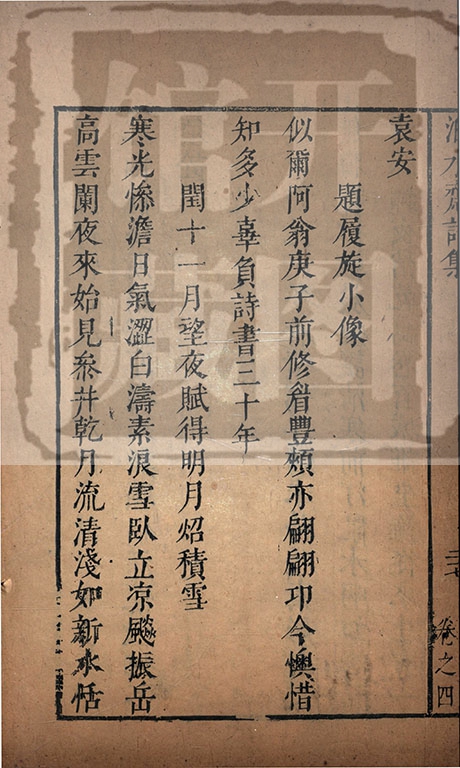 卷之四
袁安
題履旋小像
似爾阿翁庚子前修眉豐頰亦翩翩印今懊惜
知多少辜負詩書三十年
閏十一月望夜賦得明月炤積雪
寒光慘澹日氣澀白濤素浪雪臥立凉飈振岳
高雲闌夜來始見參井乾月流清淺如新水恬